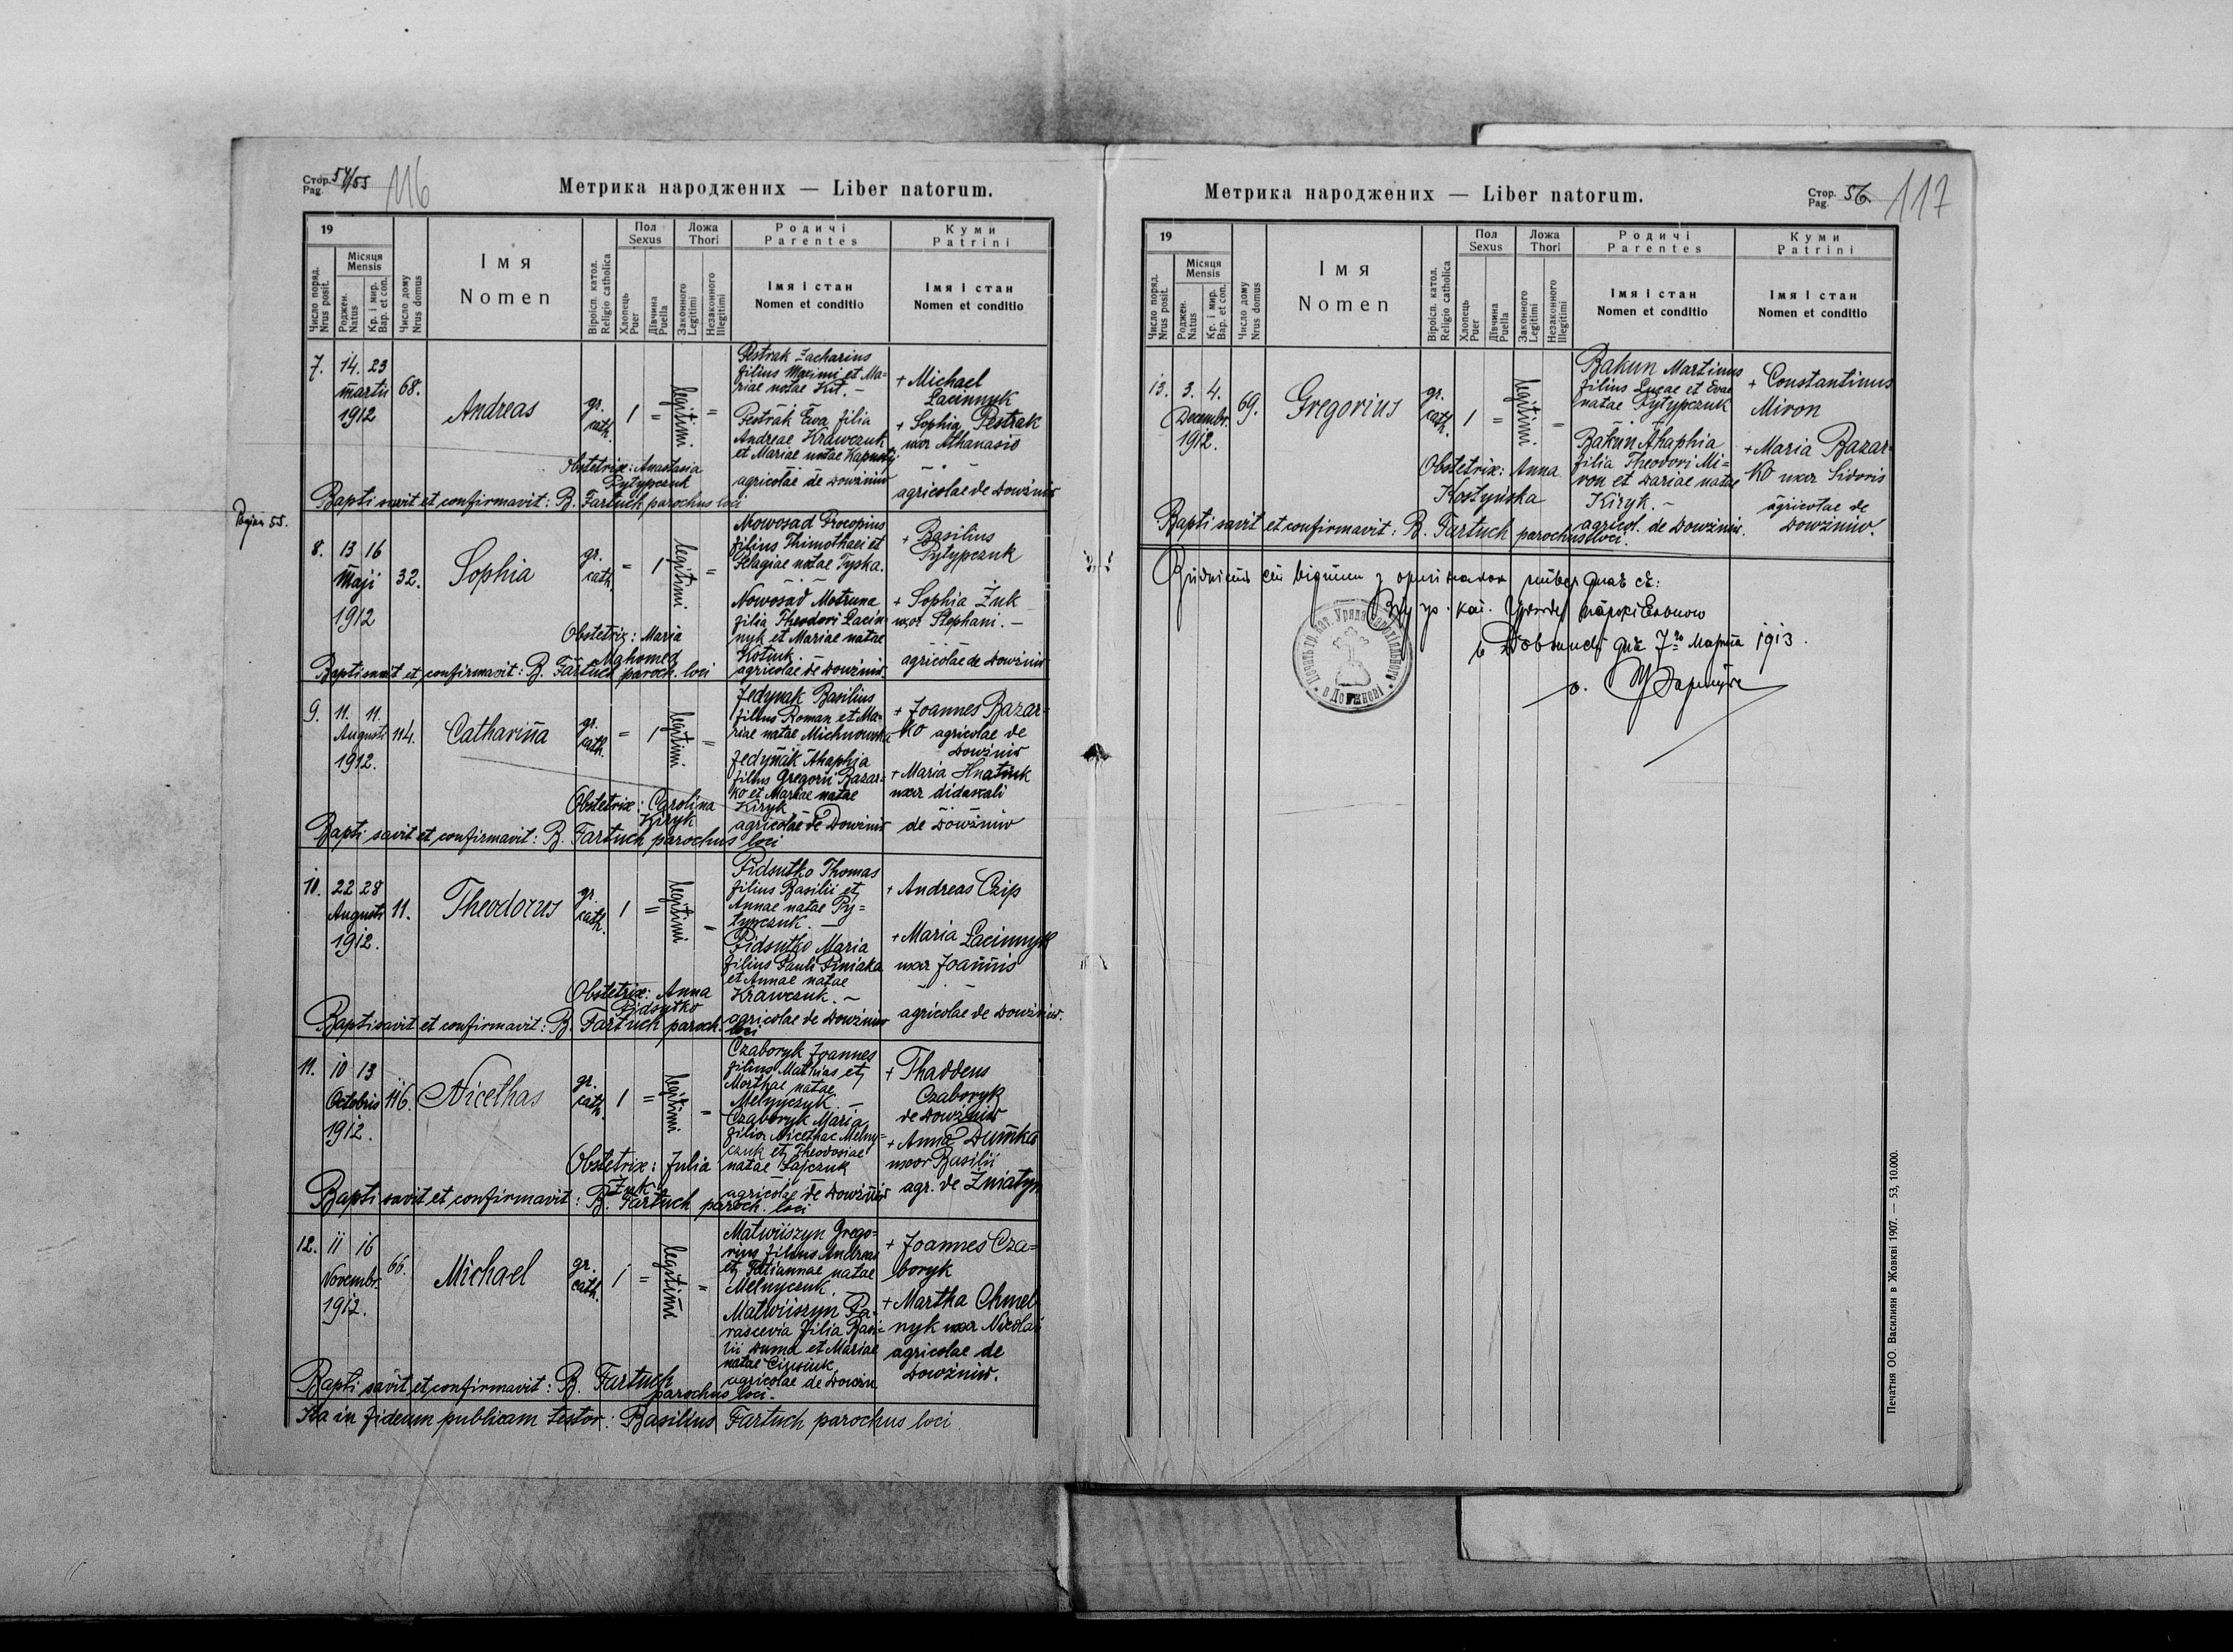 Стор. 54/55
Pag.
116
Метрика народжених — Liber natorum.
19
Число поряд.
Nrus posit.
Місяця
Mensis
Роджен.
Natus
Кр. і мир.
Bap. et con.
Число дому
Nrus domus
Імя
Nomen
Віроісп. катол.
Religio catholica
Пол
Sexus
Хлопець
Puer
Дівчина
Puella
Ложа
Thori
Законного
Legitimi
Незаконного
Illegitimi
Родичі
Parentes
Імя і стан
Nomen et conditio
Куми
Patrini
Імя і стан
Nomen et conditio
7.
14. 23
martii
1912
68.
Andreas
gr.
cath.
1
=
legitimi.
=
Pestrak Zacharius
filius Maximi et Ma=
riae natae Kit. –
Pestrak Eva filia
Andreae Krawczuk
et Mariae natae Kapustij
agricolae de Dowżniw
+ Michael
Lacinnyk
+ Sophia Pestrak
uxor Athanasio
agricolae de Dowżniw
Obstetrix: Anastasia
Pytypczuk
Baptisavit et confirmavit: B. Fartuch parochus loci
Pagina 55.
8.
13 16
Maji
1912
32.
Sophia
gr.
cath.
=
1
legitimi.
=
Nowosad Procopius
filius Thimothaei et
Pelagiae natae Tyska.
Nowosad Motruna
filia Theodori Lacin=
nyk et Mariae natae
Kotiuk.
agricolae de Dowżniw.
+ Basilius
Pytypczuk
+ Sophia Żuk
uxor Stephani. –
agricolae de Dowżniw
Obstetrix: Maria
Mahomed
Baptisavit et confirmavit: B. Fartuch paroch. loci
9.
11. 11.
Augusti
1912.
114.
Catharina
gr.
cath.
=
1
legitimi
=
Jedynak Basilius
filius Roman et Ma=
riae natae Michnowska
Jedynak Ahaphia
filius Gregorii Bazar=
ko et Mariae natae
Kiryk
agricolae de Dowżniw
+ Joannes Bazar=
ko agricolae de
Dowżniw
+ Maria Hnatiuk
uxor didaxali
de Dowżniw
Obstetrix: Carolina
Kiryk
Baptisavit et confirmavit: B. Fartuch parochus loci
10.
22 28
Augusti
1912.
11.
Theodorus
gr.
cath.
1
=
legitimi
=
Pidsutko Thomas
filius Basilii et
Annae natae Py=
typczuk. –
Pidsutko Maria
filius Pauli Piniaka
et Annae natae
Krawczuk. –
agricolae de Dowżniw
+ Andreas Czip
+ Maria Lacinnyk
uxor Joannis
agricolae de Dowżniw.
Obstetrix: Anna
Pidsutko
Baptisavit et confirmavit: B. Fartuch paroch. loci
11.
10 13
Octobris
1912.
116.
Nicethas
gr.
cath.
1
=
legitimi
=
Czaboryk Joannes
filius Mathias et
Marthae natae
Melnyczyk. –
Czaboryk Maria
filia Nicethae Melny=
czuk et Theodosiae
natae Sajczuk
agricolae de Dowżniw
+ Thaddeus
Czaboryk
de Dowżniw
+ Anna Dumka
uxor Basilii
agr. de Żniatyn
Obstetrix: Julia
Żuk
Baptisavit et confirmavit: B. Fartuch paroch. loci
12.
11 16
Novembr.
1912.
66.
Michael
gr.
cath.
1
=
legitimi
=
Matwiiszyn Grego=
rius filius Andreae
et Tatiannae natae
Melnyczuk.
Matwiiszyn Pa=
rascevia filia Basi=
lii Duma et Mariae
natae
agricolae de Dowżn.
+ Joannes Cza=
boryk
+ Martha Chmel=
nyk uxor Nicolai
agricolae de
Dowżniw.
Baptisavit et confirmavit: B. Fartuch
parochus loci.
Ita in fideum publicam testor: Basilius Fartuch parochus loci.
Метрика народжених — Liber natorum.
Стор. 56.
Pag.
117
19
Число поряд.
Nrus posit.
Місяця
Mensis
Роджен.
Natus
Кр. і мир.
Bap. et con.
Число дому
Nrus domus
Імя
Nomen
Віроісп. катол.
Religio catholica
Пол
Sexus
Хлопець
Puer
Дівчина
Puella
Ложа
Thori
Законного
Legitimi
Незаконного
Illegitimi
Родичі
Parentes
Імя і стан
Nomen et conditio
Куми
Patrini
Імя і стан
Nomen et conditio
13.
3. 4.
Decembr.
1912.
69.
Gregorius
gr.
cath.
1
=
legitimi
=
Bakun Martinus
filius Lucae et Evae
natae Pytypczuk
Bakun Ahaphia
filia Theodori Mi=
ron et Dariae natae
Kiryk. –
agricol. de Dowżniw.
+ Constantinus
Miron
+ Maria Bazar=
ko uxor Sidoris
agricolae de
Dowżniw.
Obstetrix: Anna
Kostyńska
Baptisavit et confirmavit: B. Fartuch parochus loci.
сей з оригіналом
гр. кат.
в дня 7го Марта 1913.
Печатня ОО. Василиян в Жовкві 1907. — 53, 10.000.